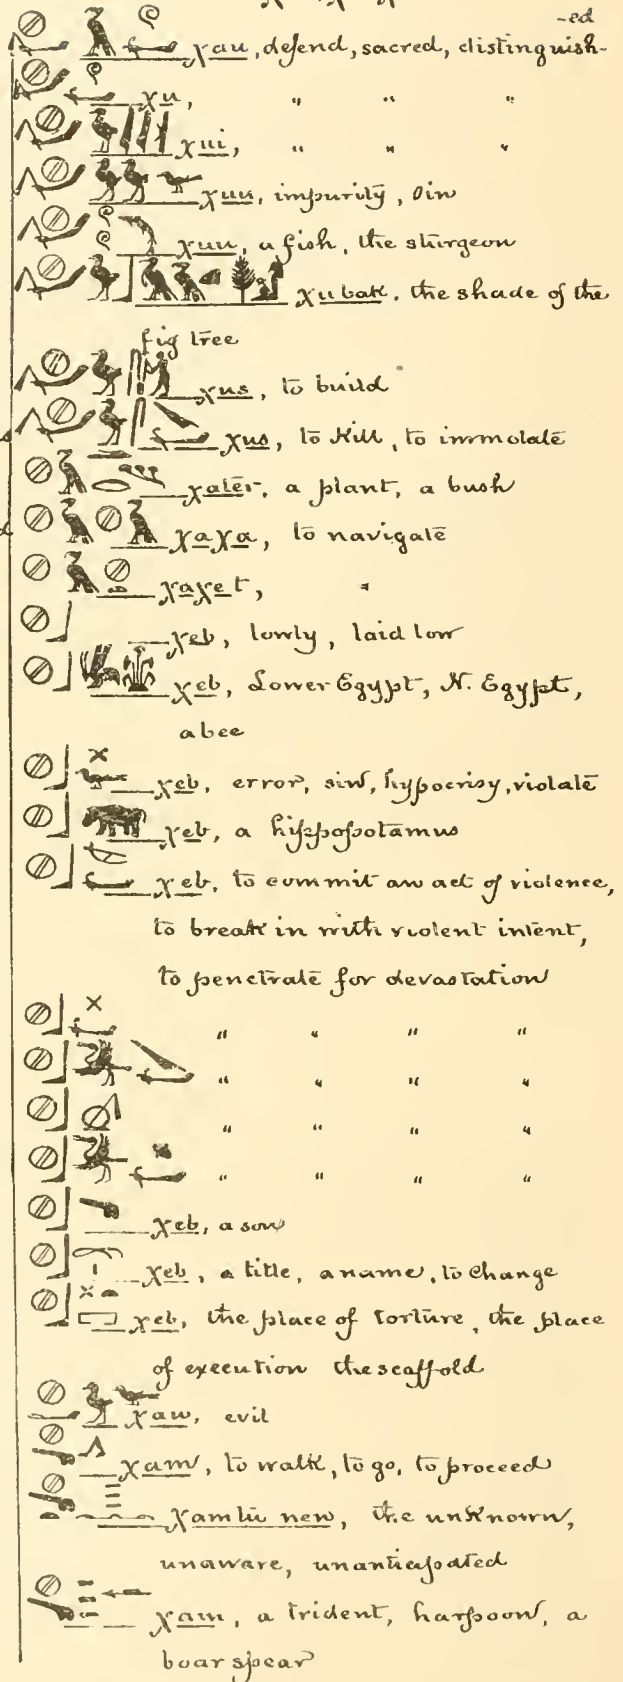 -ed
χau, defend, sacred, distinguish-
χu, " " "
χui, " " "
χuu, impurity, sin
χuu, a fish, the sturgeon
χubak. the shade of the
fig tree
χus, to build
χus, to kill, to immolate
χater, a plant, a bush
χaχa, to navigate
χaχet, "
χeb, lowly, laid low
χeb, Lower Egypt, N. Egypt,
a bee
χeb, error, sin, hypocrisy, violate
χeb, a hippopotamus
χeb, to commit an act of violence,
to break in with violent intent,
to penetrate for devastation
" " " "
" " " "
" " " "
" " " "
χeb, a son
χeb, a title, a name, to change
χeb, the place of torture, the place
of execution the scaffold
χaw, evil
χam, to walk, to go, to proceed
χamtu new, the unknown,
unaware, unanticipated
χam, a trident, harpoon, a
boar spear